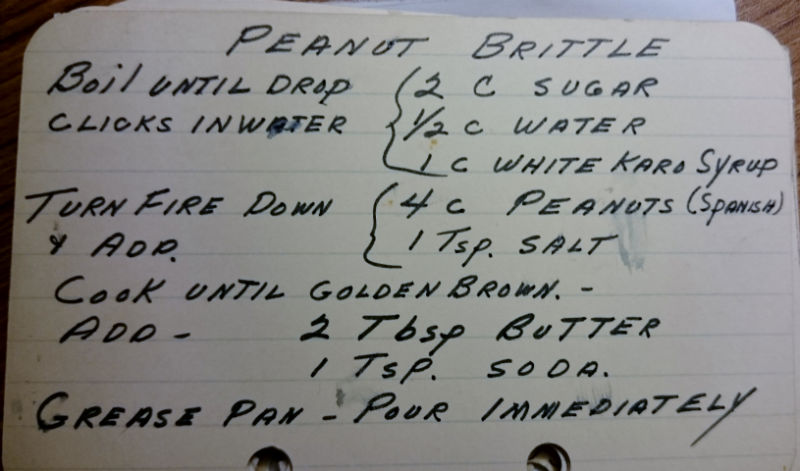 PEANUT BRITTLE
Boil UNTIL DROP { 2 C SUGAR
CLICKS IN WATER { 1/2 C WATER
1 C WHITE KARO SYRUP
TURN FIRE DOWN { 4 C PEANUTS (SPANISH)
& ADD. { 1 Tsp. SALT
COOK UNTIL GOLDEN BROWN. -
ADD - 2 Tbsp BUTTER
1 TSP. SODA.
GREASE PAN - POUR IMMEDIATELY